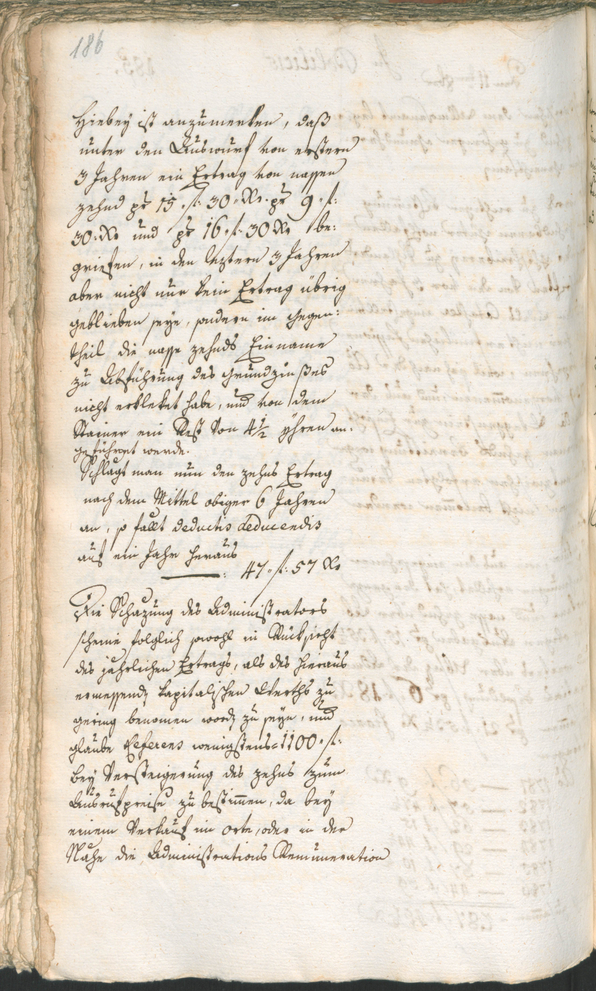 186
Hiebey ist anzumerken, daß
unter den Auswurf von erstern
3 Jahren ein Ertrag von nassen
zehnd pr 15 f: 30 Xr. pr 9. f:
30. Xr und pr 16. f: 30 Xr be:
griefen, in den leztern 3 Jahren
aber nicht nur kein Ertrag übrig
geblieben seye, sondern im gegen:
theil die nasse zehends Einname
zu Abführung des Grundzinßes
nicht erkleket habe, und von dem
Steiner ein Rest von 4½ yhren an:
geführet werde.
Schlagt man nun den zehnd Ertrag
nach dem Mittel obiger 6 Jahren
an, so fallt deductis deducendis
auf ein Jahr heraus
47. f: 57 Xr
Die Schazung des Administrators
scheine folglich sowohl in Rücksicht
des jährlichen Ertrags, als des hieraus
ermessend kapitalischen Werths zu
gering benomen word zu seyn, und
glaube Referens wenigstens 1100. f:
bey Versteigerung des zehnd zum
Ausrufspreise zu bestimmen, da bey
einem Verkauf im orte, oder in der
Nähe die Administrations Remuneration